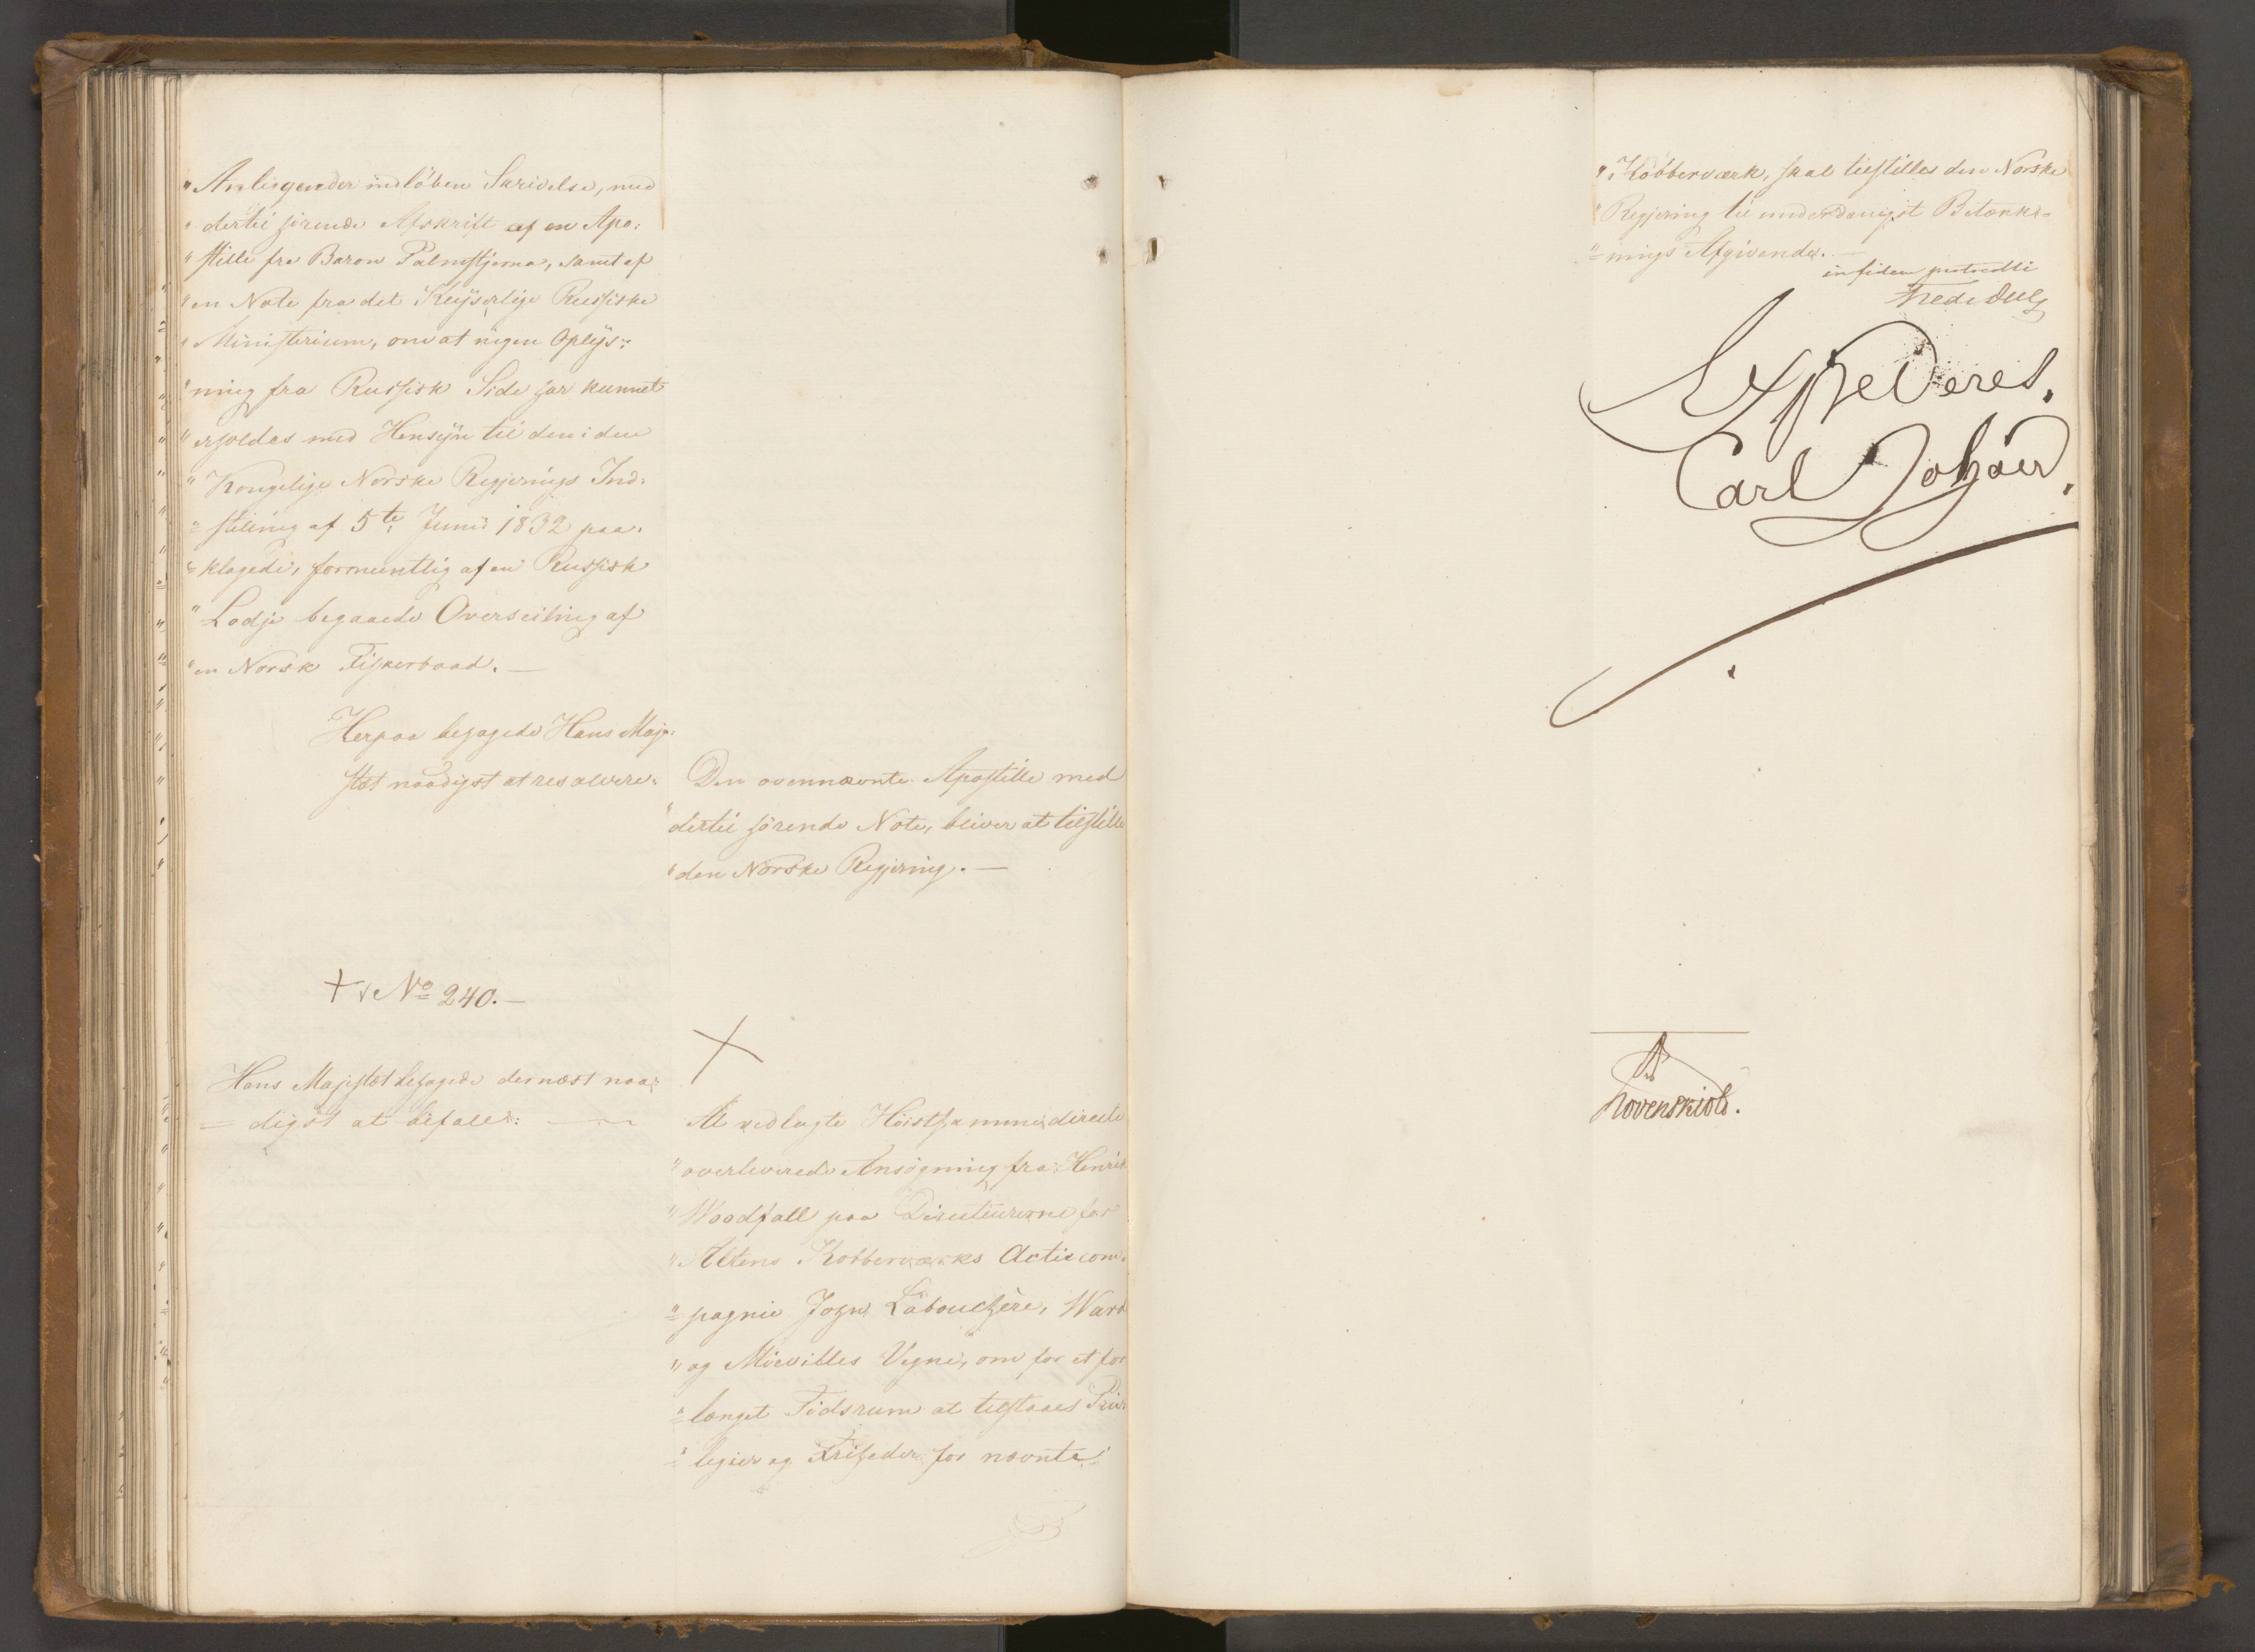 "Anliggender indløben Skrivelse, med
"dertil hørende Afskrift af en Apo:
"stille fra Baron Palmstjerna, samt af
"en Note fra det Keyserlige Russiske
"Ministerium, om at ingen Oplys:
"ning fra Russisk Side har kunnet
"erholdes med Hensyn til den i den
"Kongelige Norske Regjerings Ind:
=stilling af 5te Junii 1832 paa:
=klagede, formeentlig af en Russisk
"Lodje begaaede Overseiling af
"en Norsk Fiskerbaad. —
Herpaa behagede Hans Maje:
stæt naadigst at resolvere:
Den ovennævnte Apostille med
"dertil hørende Note, bliver at tilstille
"den Norske Regjering. —
+ No 240. —
Hans Majestæt behagede dernæst naa:
=digst at befale:
At vedlagte Høistsamme directe
"overleverede Ansøgning fra Henrik
"Woodfall paa Directeurerne for
"Altens Kobberværks Actiecom:
"=pagnie John Labouchère, Ward
"og Miévilles Vegne, om for et for
"=længet Tidsrum at tilstaaes Privi
"=legier og Friheder for nævnte
"Kobberværk, skal tilstilles den Norske
"Regjering til underdanigst Betænk=
"=nings Afgivende. —
in fidem protocolli
Fred: Due
Expederes.
Carl Johan.
Løvenskiold.